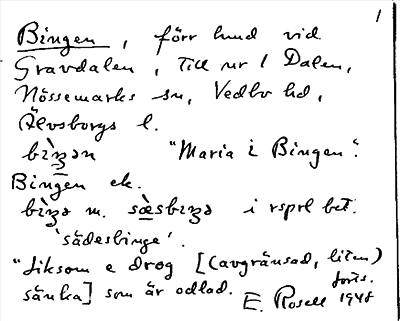 1
Bingen, förr lund vid
Gravdalen, till nr 1 Dalen,
Nössemarks sn, Vedbo hd,
Älvsborgs l.
bìŋən "Maria i Bingen".
Bingen ek.
bìŋə m. sæ̀sbɩŋə i rsprl bet.
'sädesbinge'.
"liksom e drog [(avgränsad, liten)
sänka] som är odlad. forts.
E. Rosell 1948